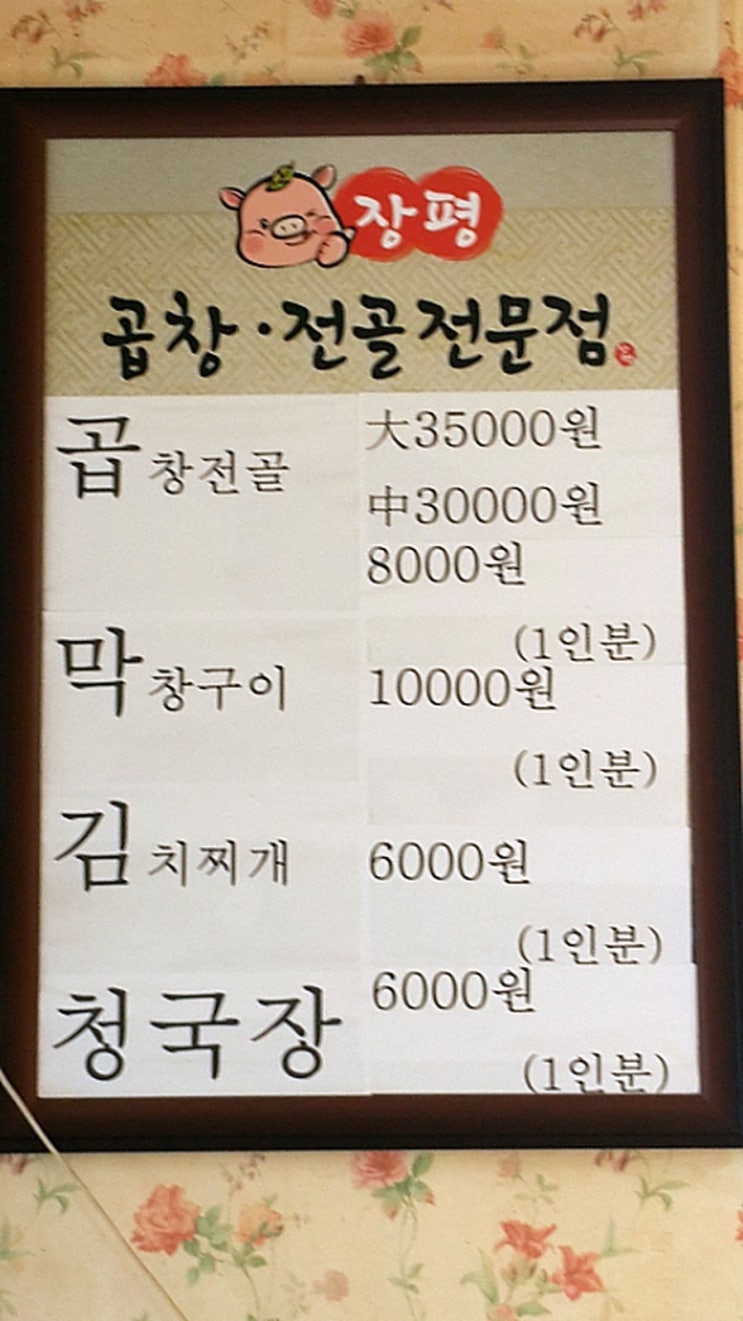 장평
곱창·전골전문점
곱창전골 大35000원
中30000원
8000원
(1인분)
막창구이 10000원
(1인분)
김치찌개 6000원
(1인분)
청국장 6000원
(1인분)